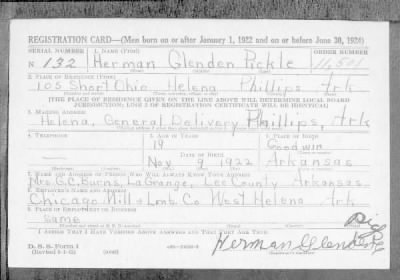 REGISTRATION CARD—(Men born on or after January 1, 1922 and on or before June 30, 1924)
SERIAL NUMBER 1. NAME (Print) ORDER NUMBER
N 132 Herman Glenden Pickle 11,501
2. PLACE OF RESIDENCE (Print)
105 Short Ohio Helena Phillips Ark
[THE PLACE OF RESIDENCE GIVEN ON THE LINE ABOVE WILL DETERMINE LOCAL BOARD
JURISDICTION; LINE 2 OF REGISTRATION CERTIFICATE WILL BE IDENTICAL]
3. MAILING ADDRESS
Helena, General Delivery Phillips, Ark
4. TELEPHONE 5. AGE IN YEARS 6. PLACE OF BIRTH
19 Goodwin
DATE OF BIRTH
Nov 9 1922 Arkansas
7. NAME AND ADDRESS OF PERSON WHO WILL ALWAYS KNOW YOUR ADDRESS
Mrs. G.C. Burns, LaGrange, Lee County Arkansas.
8. EMPLOYER'S NAME AND ADDRESS
Chicago Mill & Lmb. Co West Helena Ark
9. PLACE OF EMPLOYMENT OR BUSINESS
Same
I AFFIRM THAT I HAVE VERIFIED ABOVE ANSWERS AND THAT THEY ARE TRUE.
D. S. S. Form 1
Herman Glenden